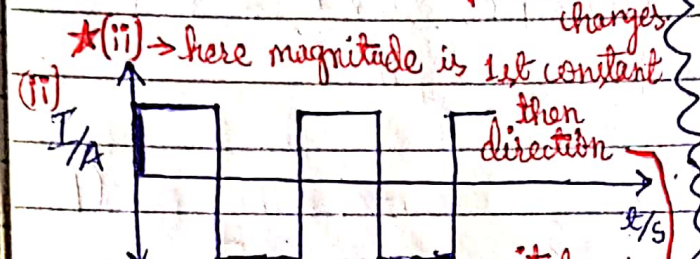 changes
★(ii) → here magnitude is 1st constant
(ii)
then
I/A
direction
t/s